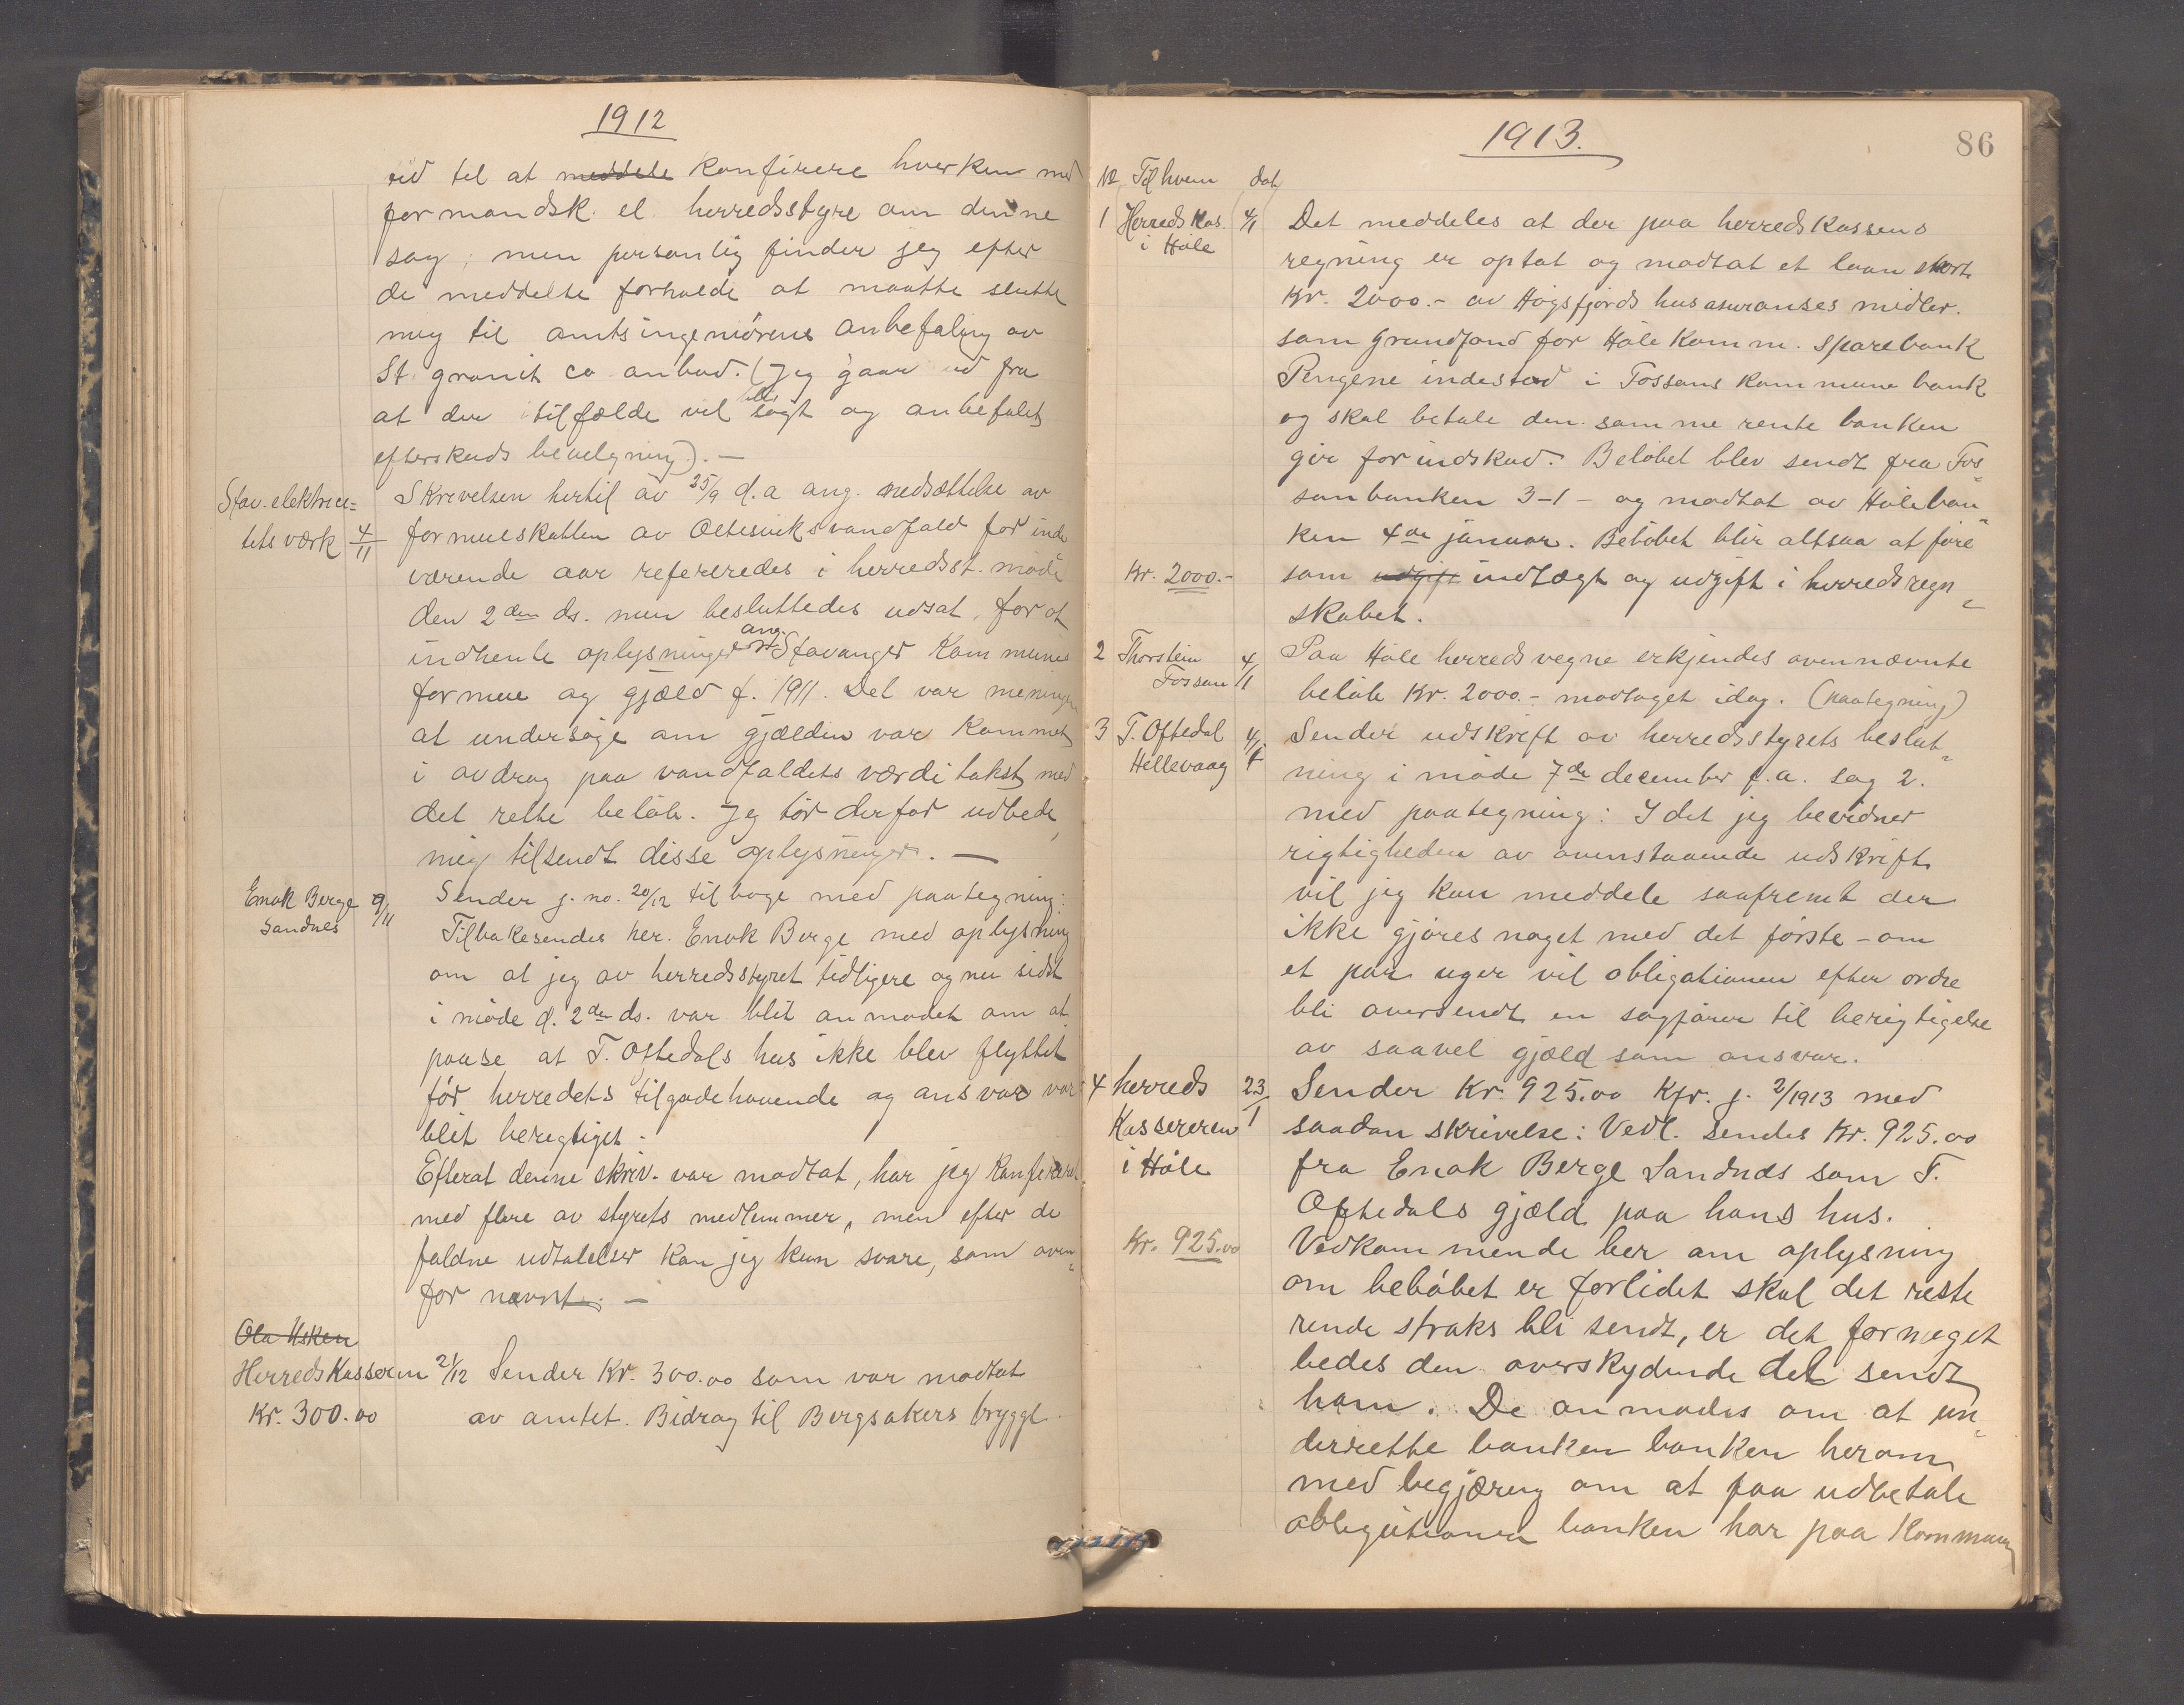 1912
tid til at meddele konferere hverken med
formandsk. el. herredsstyre om denne
sag; men personlig finder jeg efter
de meddelte forholde at maatte slutte
mig til amtsingeniørens anbefaling av
St. granit co anbud. (Jeg gaar ud fra
at der i tilfælde vil bli søgt og anbefalet
efterskuds bevilgning). —
Stav. elektrici=
tets værk 4/11
Skrivelsen hertil av 25/9 d.a ang. nedsættelse av
formueskatten av Oltesviks vandfald for inde
værende aar refereredes i herredsst. møde
den 2den ds. men besluttedes udsat, for at
indhente oplysninger ang. Stavanger Kommunes
formue og gjæld f. 1911. Det var meningen
at undersøge om gjælden var kommet
i avdrag paa vandfaldets værditakst med
det rette beløb. Jeg tør derfor udbede
mig tilsendt disse oplysninger. —
Enok Berge 9/11
Sandnes
Sender j. no. 20/12 tilbage med paategning:
Tilbakesendes her. Enok Berge med oplysning
om at jeg av herredsstyret tidligere og nu sidst
i møde d. 2den ds. var blit anmodet om at
paase at T. Oftedals hus ikke blev flyttet
før herredets tilgodehavende og ansvar var
blit berigtiget.
Efterat denne skriv. var modtat, har jeg konfereret
med flere av styrets medlemmer, men efter de
faldne udtalelser kan jeg kun svare, som oven=
for nævnt. —
Ola Usken
Herredskasseren 21/12 Sender Kr. 300.00 som var modtat
Kr. 300.00 av amtet. Bidrag til Bergsakers brygge.
1913.
86
No. Til hvem dat
1 Herredskas. 4/1
i Høle
Det meddeles at der paa herredskassens
regning er optat og modtat et laan stort
Kr. 2000.- av Høgsfjords husasuranses midler.
som grundfond for Høle Komm. Sparebank
Pengene indestod i Fossans kommune bank
og skal betale den samme rente banken
gir for indskud. Beløbet blev sendt fra Fos=
sanbanken 3-1- og modtat av Høleban=
ken 4de januar. Beløbet blir altsaa at føre
Kr. 2000.-
som udgift indtægt og udgift i herredsregn=
skabet.
2 Thorstein 4/1
Fossan
Paa Høle herreds vegne erkjendes ovennævnte
beløb Kr. 2000.- modtaget idag. (paategning)
3 T. Oftedal 4/1
Hillevaag
Sender udskrift av herredsstyrets beslut=
ning i møde 7de december f.a. sag 2.
med paategning: Idet jeg bevidner
rigtigheden av ovenstaaende udskrift
vil jeg kun meddele saafremt der
ikke gjøres noget med det første - om
et par uger vil obligationen efter ordre
bli oversendt en sagfører til berigtigelse
av saavel gjæld som ansvar.
4 herreds 23/1
Kassereren
i Høle
Sender Kr. 925.00 Kfr. j. 2/1913 med
saadan skrivelse: Vedl. sendes Kr. 925.00
fra Enok Berge Sandnds som T.
Oftedals gjæld paa hans hus.
Kr. 925.00
Vedkommende ber om oplysning
om beløbet er forlidet skal det reste
rende straks bli sendt, er det formeget
bedes den overskydende del sendt
ham. De anmodes om at un=
derrette banken banken herom
med begjæring om at faa udbetale
obligationen banken har paa Kommunen